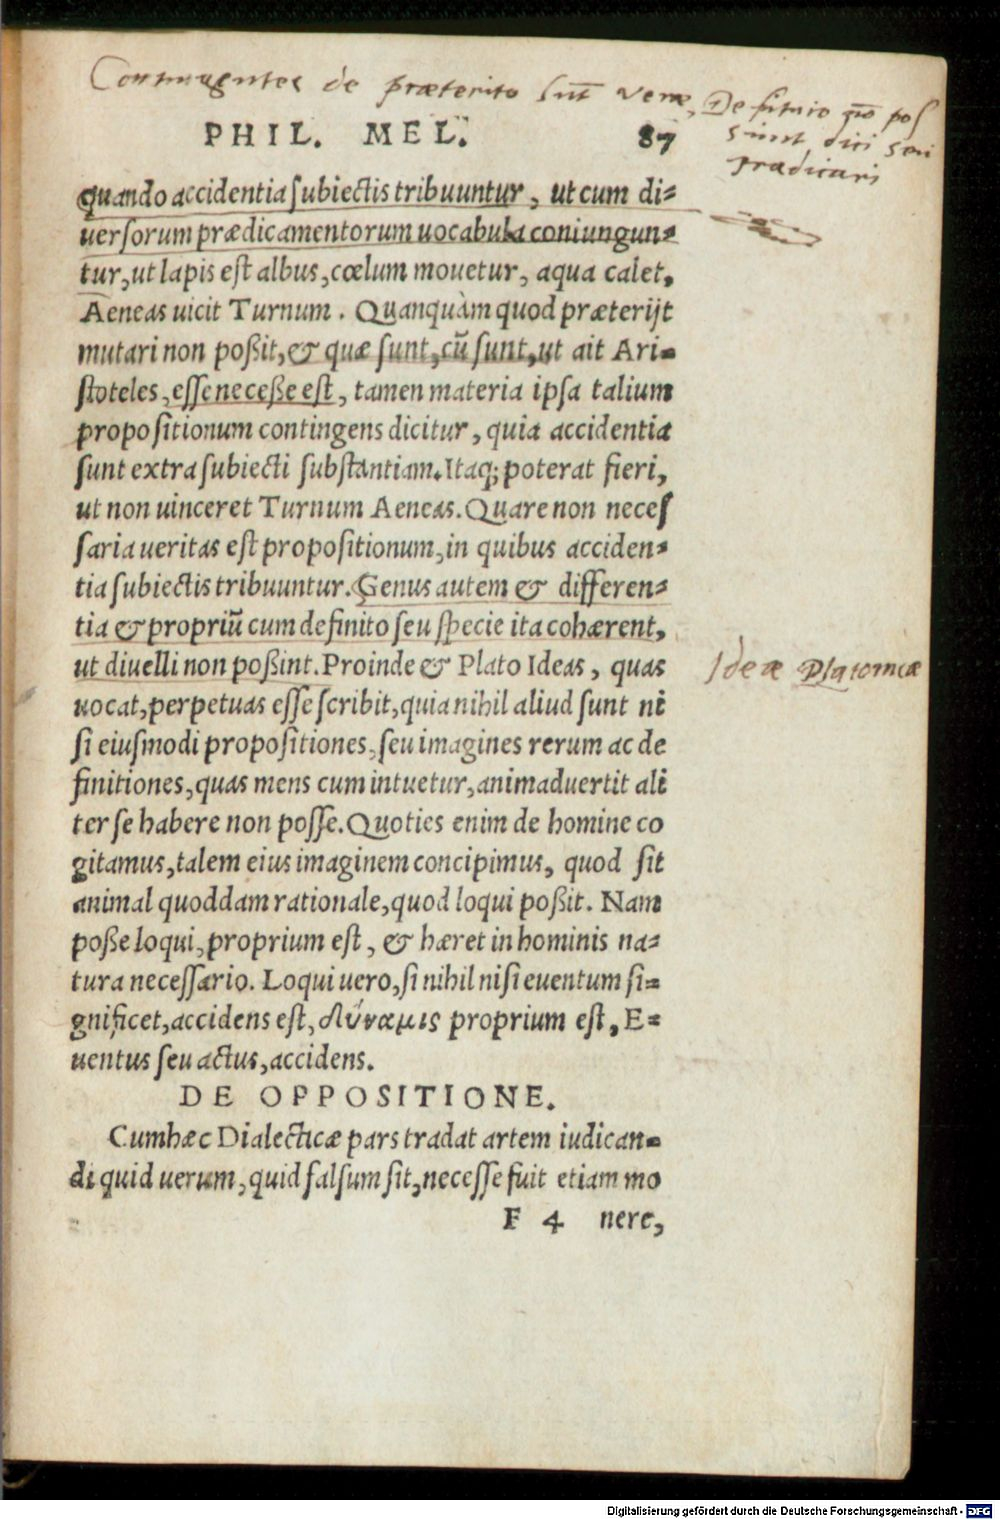 Contingentes de præterito sūt veræ, De futuro nō pos
sunt dici seu
prædicari
PHIL. MEL. 87
quando accidentia ſubiectis tribuuntur, ut cum di-
uerſorum prædicamentorum uocabula coniungun-
tur, ut lapis eſt albus, cœlum mouetur, aqua calet,
Aeneas uicit Turnum. Quanquàm quod præterijt
mutari non poßit, & quæ ſunt, cū ſunt, ut ait Ari-
ſtoteles, eſſe neceße eſt, tamen materia ipſa talium
propoſitionum contingens dicitur, quia accidentia
ſunt extra ſubiecti ſubſtantiam. Itaq; poterat fieri,
ut non uinceret Turnum Aeneas. Quare non neceſ
ſaria ueritas eſt propoſitionum, in quibus acciden-
tia ſubiectis tribuuntur. Genus autem & differen-
tia & propriū cum definito ſeu ſpecie ita cohærent,
ut diuelli non poßint. Proinde & Plato Ideas, quas
Ideæ Platonicæ
uocat, perpetuas eſſe ſcribit, quia nihil aliud ſunt ni
ſi eiuſmodi propoſitiones, ſeu imagines rerum ac de
finitiones, quas mens cum intuetur, animaduertit ali
ter ſe habere non poſſe. Quoties enim de homine co
gitamus, talem eius imaginem concipimus, quod ſit
animal quoddam rationale, quod loqui poßit. Nam
poße loqui, proprium eſt, & hæret in hominis na-
tura neceſſario. Loqui uero, ſi nihil niſi euentum ſi-
gnificet, accidens eſt, δύναμις proprium eſt, E-
uentus ſeu actus, accidens.
DE OPPOSITIONE.
Cum hæc Dialecticæ pars tradat artem iudican-
di quid uerum, quid falſum ſit, neceſſe fuit etiam mo
F 4 nere,
Digitalisierung gefördert durch die Deutsche Forschungsgemeinschaft - DFG